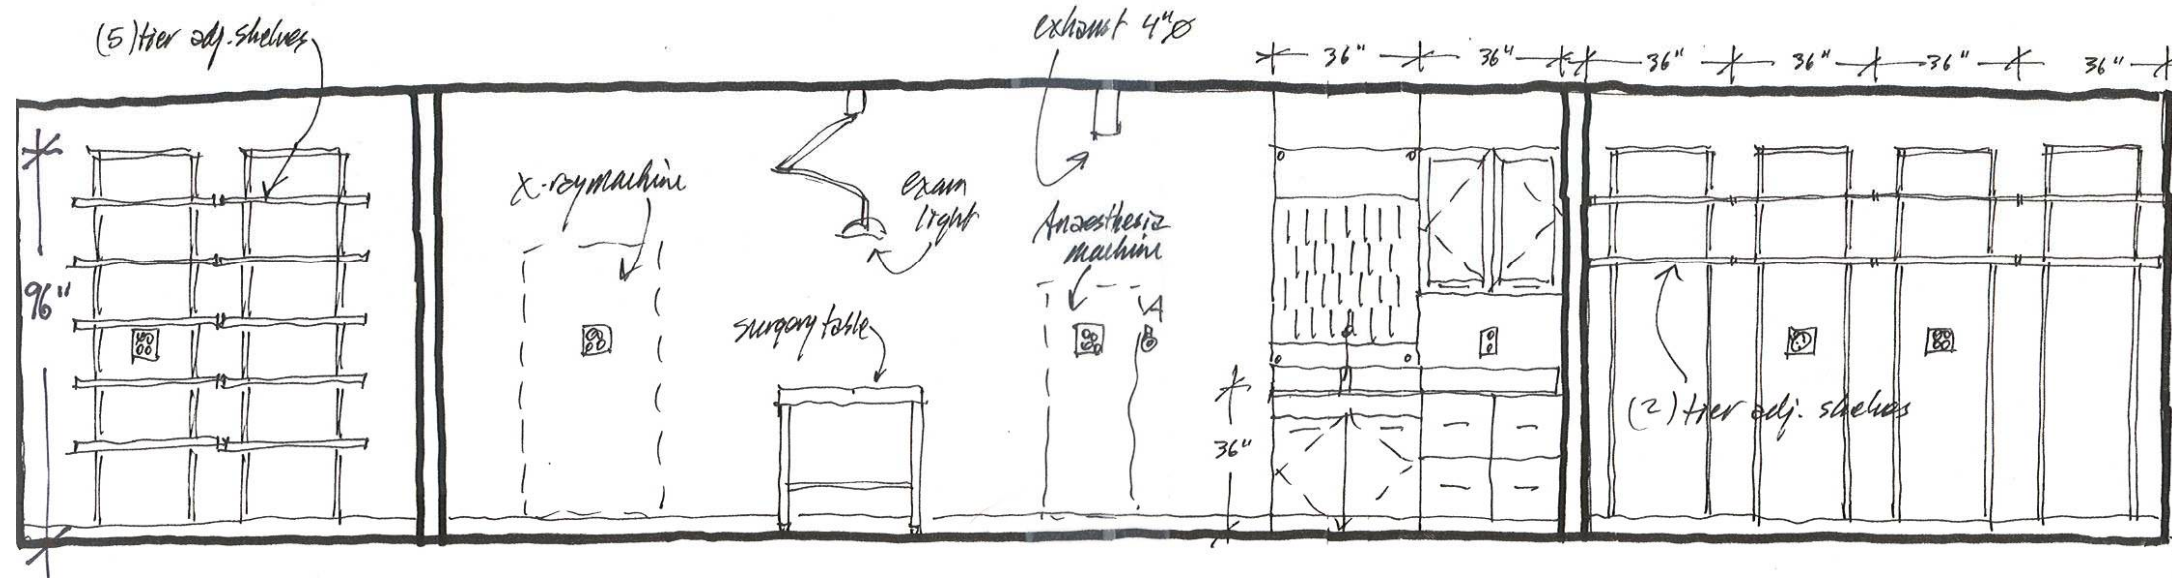 (5) tier adj. shelves
exhaust 4"Ø
36" 36" 36" 36" 36" 36"
x-ray machine
exam
light
Anaesthesia
machine
96"
surgery table
A
36"
(2) tier adj. shelves